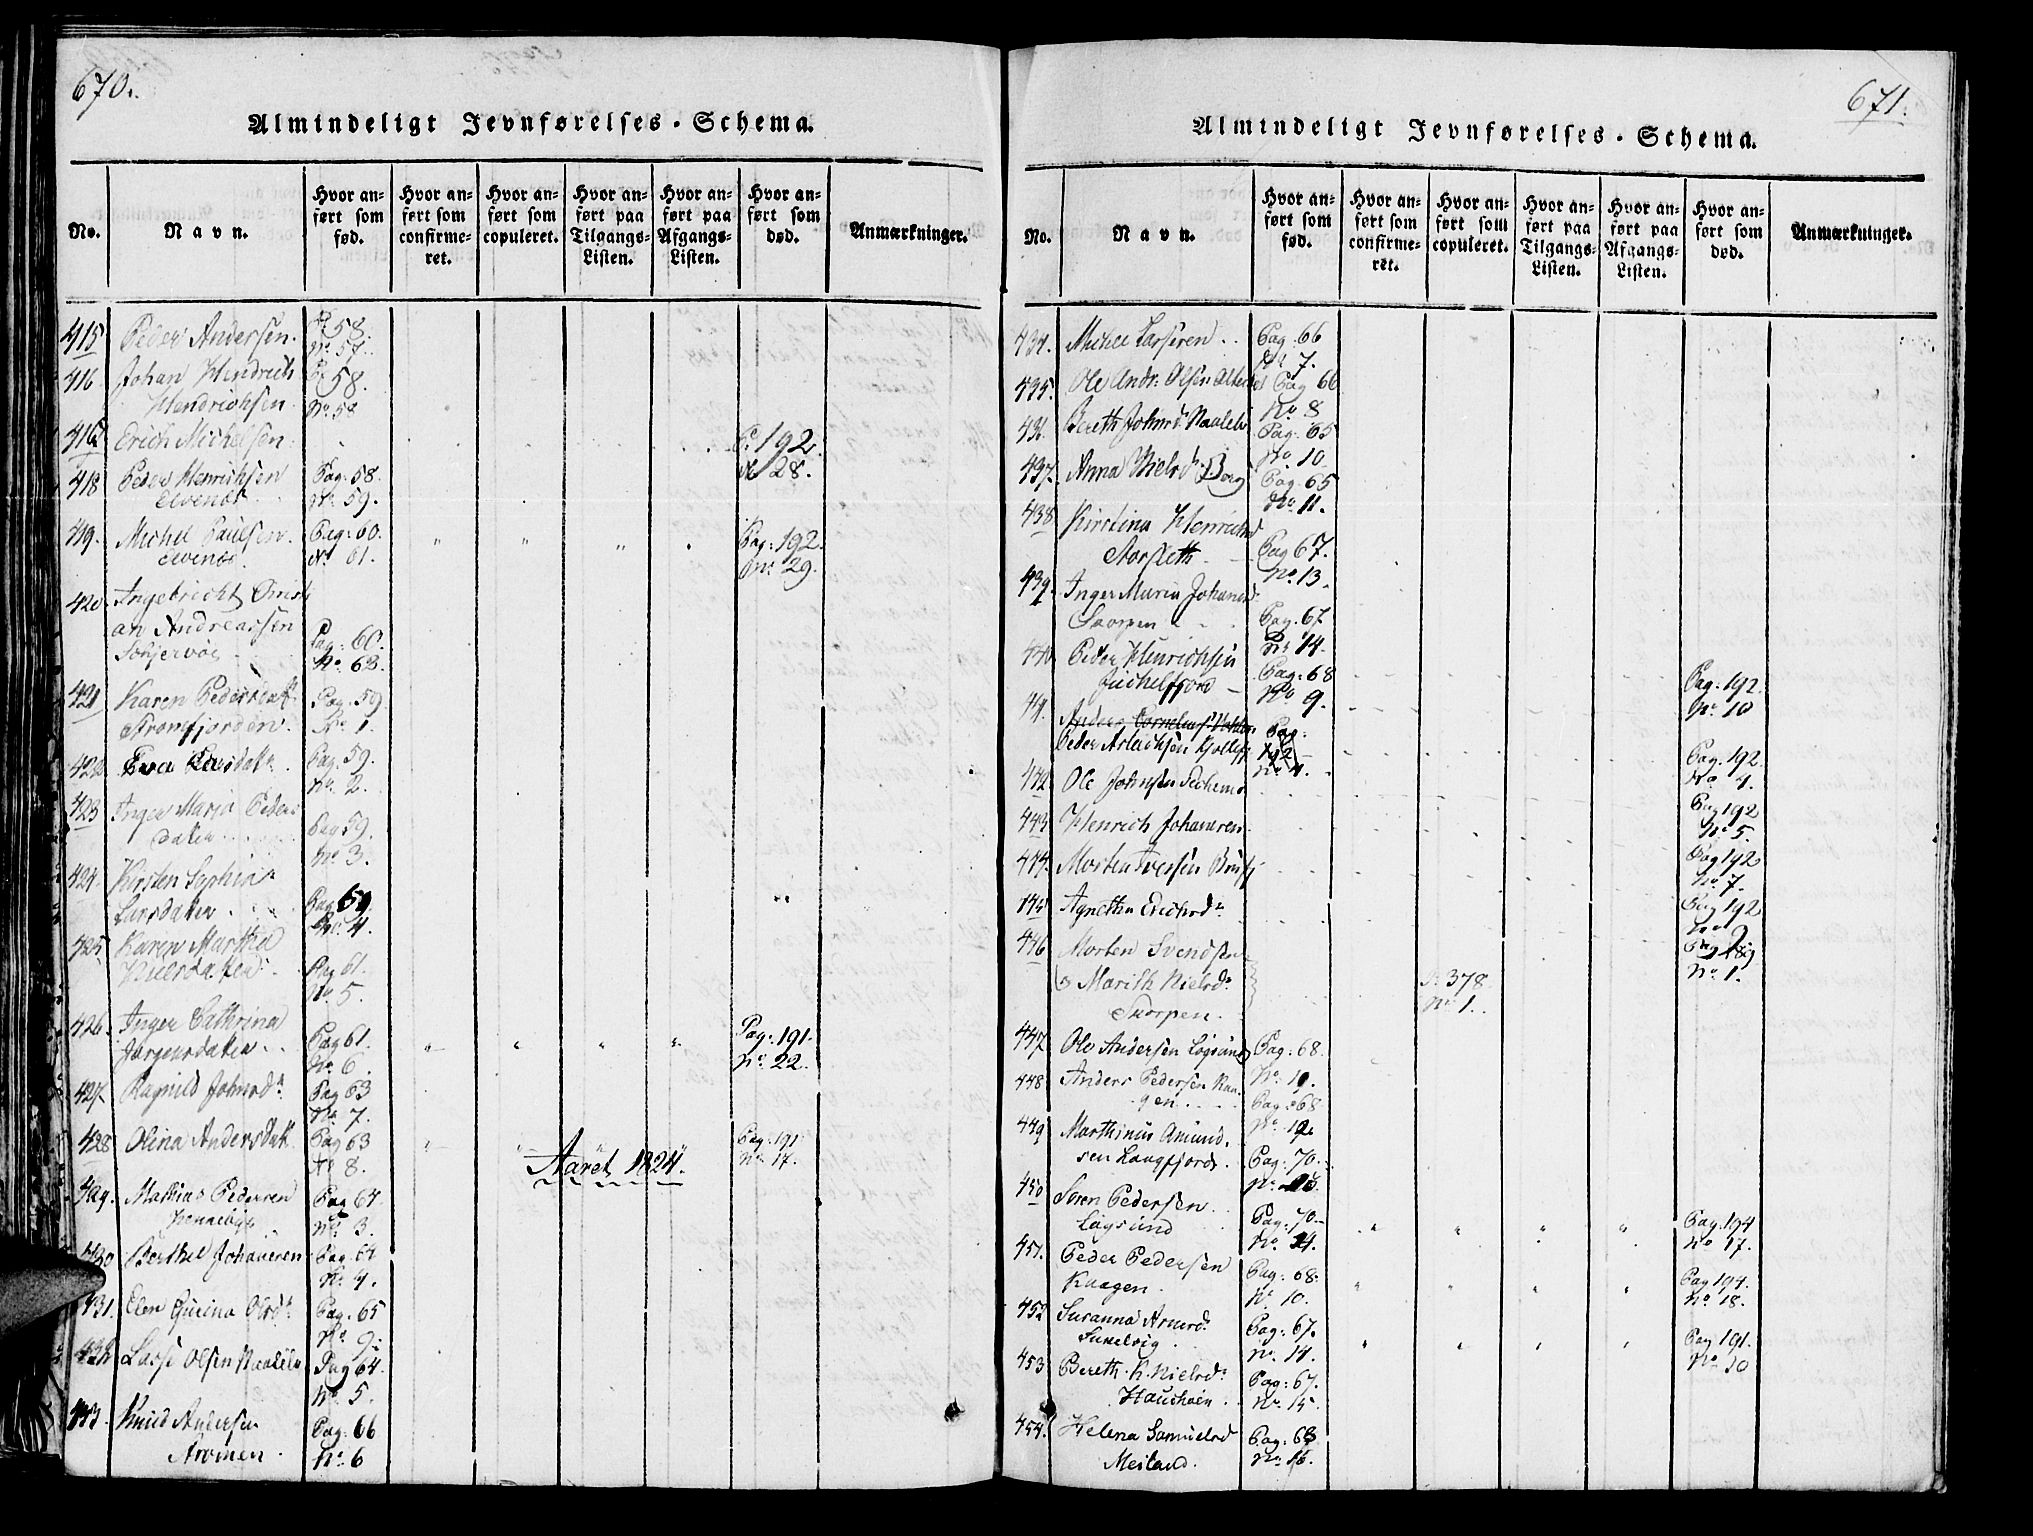 670.
Almindeligt Jevnførelses-Schema.
No.
Navn.
Hvor an-
ført som
fød.
Hvor an-
ført som
confirme-
ret.
Hvor an-
ført som
copuleret.
Hvor an-
ført paa
Tilgangs-
Listen.
Hvor an-
ført paa
Afgangs-
Listen.
Hvor an-
ført som
død.
Anmærkninger.
415 Peder Andersen. P. 58.
No. 57.
416 Johan Hendrich 58.
Hendrichsen. No. 58
Erich Michelsen P. 192
No 28.
418 Peder Henrichsen Pag. 58.
Elvenæs No. 59.
419. Michel Paulsen. Pag: 60. Pag: 192.
Elvenæs. No 61. No. 29.
420. Ingebricht Christi
an Andreassen Pag: 60.
No. 63.
421 Karen Pedersdatr. Pag. 59
Strømfjorden. No. 1.
422 Eva Larsdatr. Pag. 59.
No. 2.
423 Inger Maria Peders
datter Pag 59.
No. 3.
424. Kirsten Sophia
Larsdatter Pag 59
No. 4.
425. Karen Martha
Nielsdatter. Pag 61.
No. 5.
426. Inger Cathrina Pag: 191.
Jørgensdatter Pag 61. No. 22.
No. 6.
427. Ragnild Johnsd. Pag 63
No. 7.
428 Olina Andersdatr. Pag 63 Pag. 191
No 8. No. 17.
Aaret 1824.
429. Mathias Pedersen Pag 64
No. 3.
430 Berthel Johannesen Pag. 64
No. 4.
431. Elen Olsdr. Pag. 65
No 9.
432 Lasse Olsen Pag 64.
No. 5.
433 Knud Andersen Pag: 66
No. 6
671.
Almindeligt Jevnførelses-Schema.
No.
Navn.
Hvor an-
ført som
fød.
Hvor an-
ført som
confirme-
ret.
Hvor an-
ført som
copuleret.
Hvor an-
ført paa
Tilgangs-
Listen.
Hvor an-
ført paa
Afgangs-
Listen.
Hvor an-
ført som
død.
Anmærkninger.
434. Michel Larsen Pag. 66
No 7.
435. Ole Andr: Olsen Pag 66
No. 8
436. Bereth Johnsdr Pag. 65
No. 10
437. Anna Nielsdr Berg Pag. 65
No. 11.
438 Kirstina Henrichsd
Storsleth Pag 67.
No. 13.
439. Inger Maria Johansd
Skorpen Pag. 67
No 14.
440. Peder Henrichsen Pag: 68 Pag. 192.
Jøckelfjord No 9. No. 10
441. Anders Cornelius Pag:
Peder 192 Pag. 192
No 4. No 4.
442 Ole Johnsen Pag 192
No. 5.
443 Henrich Johansen. Pag 192
No. 7.
444. Morten Iversen Pag 192
445 Agnetha Erichsdr.
446 Morten Svendsen No. 1.
og Marith Nielsdr. 378.
Skorpen. No. 1.
447 Ole Andersen Løgsund Pag: 68.
448 Anders Pedersen Kaa-
gen Pag: 68
449 Marthinus Amund-
sen Langfjord. Pag: 70.
450 Søren Pedersen
Løgsund Pag: 70 Pag. 194
No. 14. No 17.
451. Peder Pedersen
Kaagen. Pag: 68. Pag 194.
No. 10. No. 18.
452 Susanna Arnesd.
Pag: 67. Pag 191.
No. 14. No. 20
453 Bereth K. Nielsd. Pag: 67.
No. 15.
454. Helena Samuelsd Pag: 68
Meiland. No. 16.